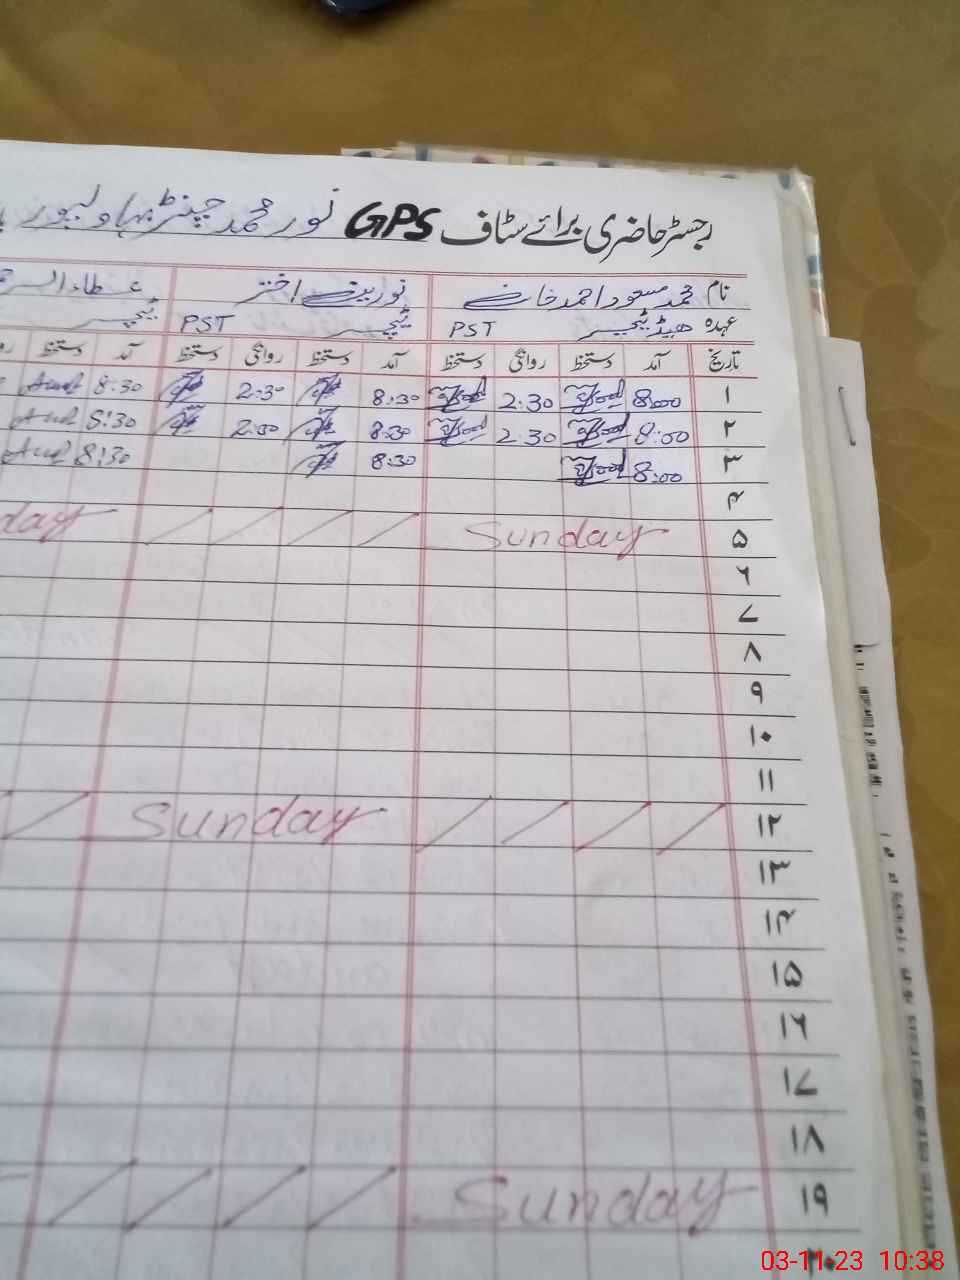 رجسٹر حاضری برائے سٹاف GPS نور محمد چنڑ بہاولپور
نام محمد مسعود احمد خان نور بین اختر عطاءالرحمٰن
عہدہ ہیڈ ٹیچر PST ٹیچر PST ٹیچر
تاریخ آمد دستخط روانگی دستخط آمد دستخط روانگی دستخط آمد دستخط
۱ 8:00 2:30 8:30 2:30 8:30
۲ 8:00 2:30 8:30 2:30 8:30
۳ 8:00 8:30 8:30
۴
۵ Sunday
۶
۷
۸
۹
۱۰
۱۱
۱۲ Sunday
۱۳
۱۴
۱۵
۱۶
۱۷
۱۸
۱۹ Sunday
۲۰
03-11-23 10:38